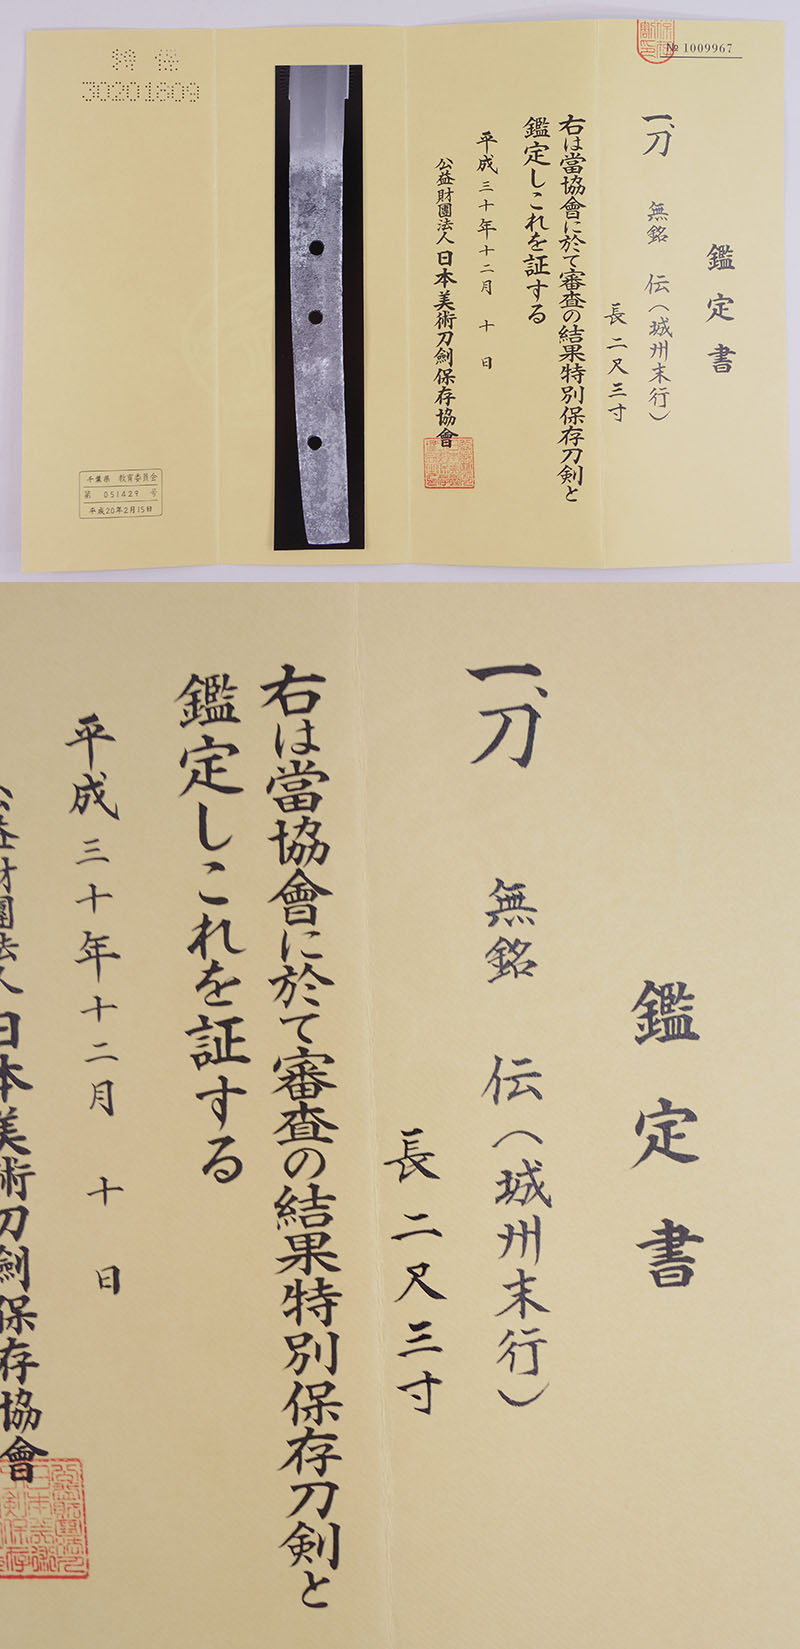 № 1009967
鑑定書
一、刀 無銘 伝(城州末行)
長二尺三寸
右は當協會に於て審査の結果特別保存刀剣と
鑑定しこれを証する
平成三十年十二月 十 日
公益財團法人日本美術刀劍保存協會
特保
30201809
千葉県 教育委員会
第 051429 号
平成20年2月15日
鑑定書
一、刀 無銘 伝(城州末行)
長二尺三寸
右は當協會に於て審査の結果特別保存刀剣と
鑑定しこれを証する
平成三十年十二月 十 日
公益財團法人日本美術刀劍保存協會